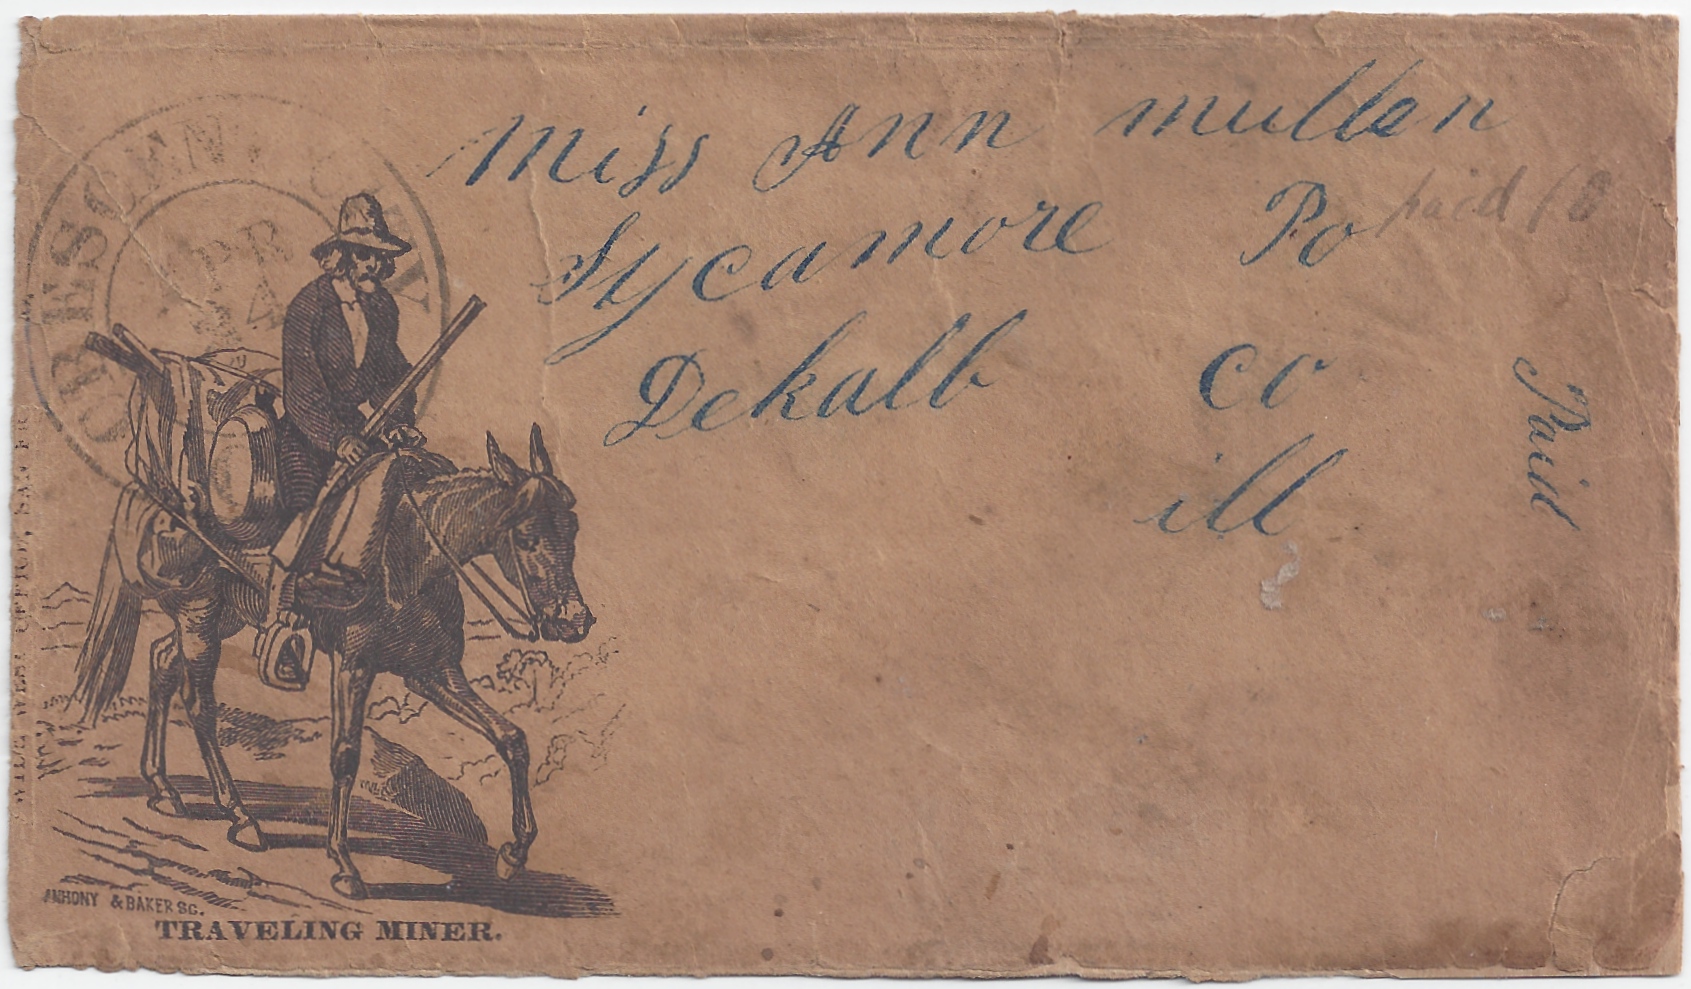 CRESCENT CITY
APR
4
Miss Ann mullen
Sycamore Po
paid 10
Dekalb Co
ill
Paid
WILD WEST OFFICE, SAN FR
ANHONY & BAKER SC.
TRAVELING MINER.